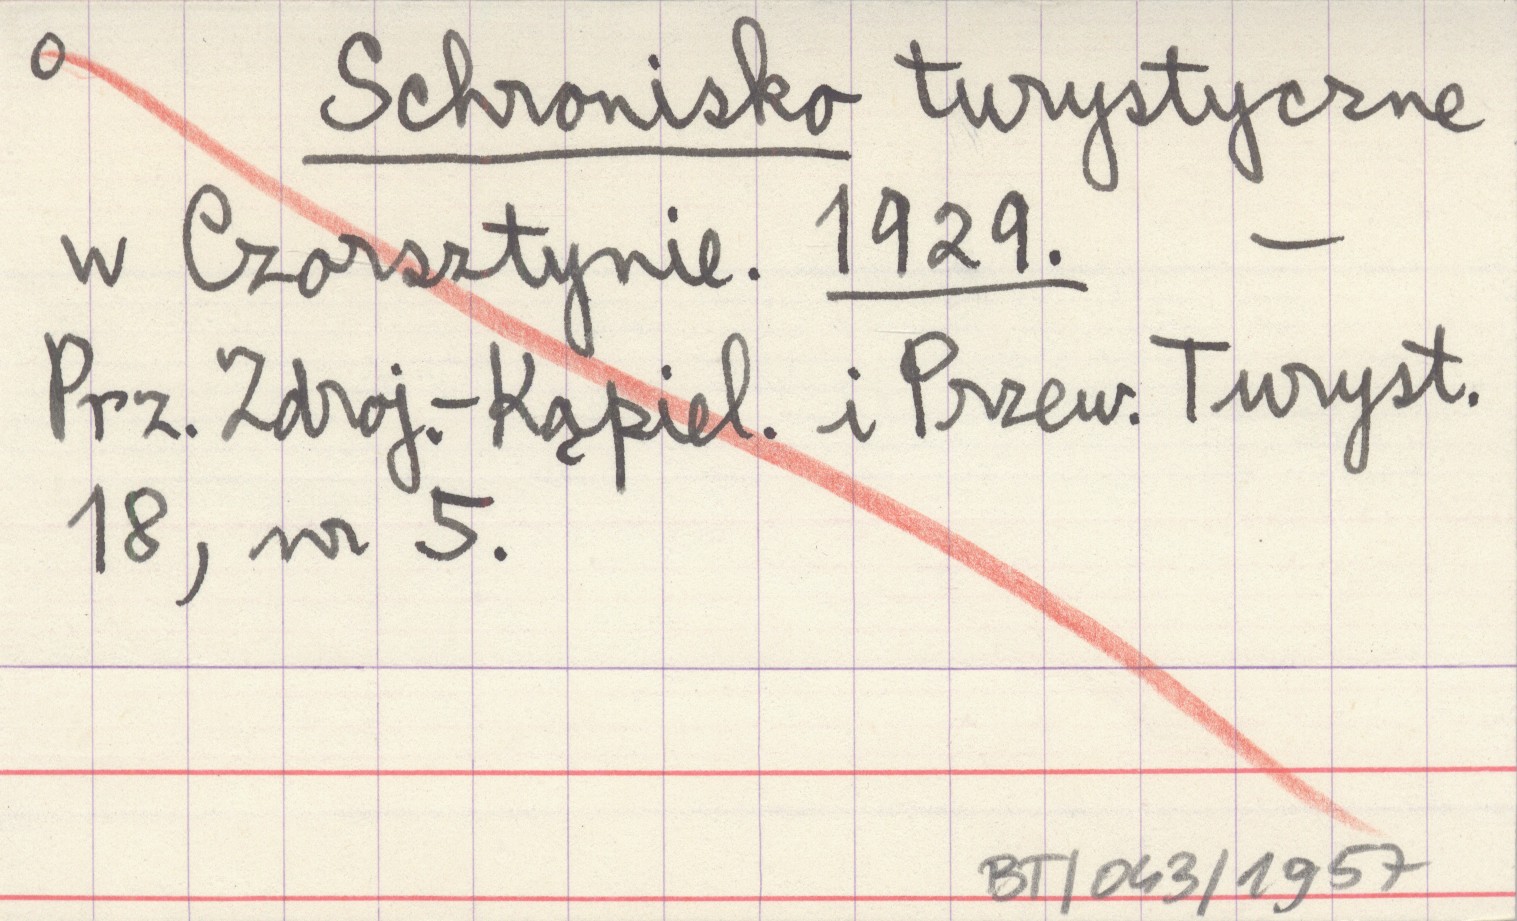 o Schronisko turystyczne
w Czorsztynie. 1929. —
Prz. Zdroj.-Kąpiel. i Przew. Turyst.
18, nr 5.
BT/043/1957